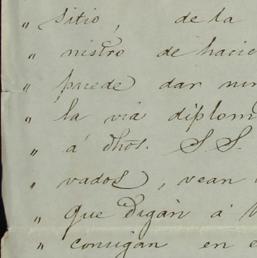 " sitio, de la
" nistro de hacie
" puede dar nin
" la via diplom
" á dhos. S.S.
" vados, vean
" que digan á
" consigan en e